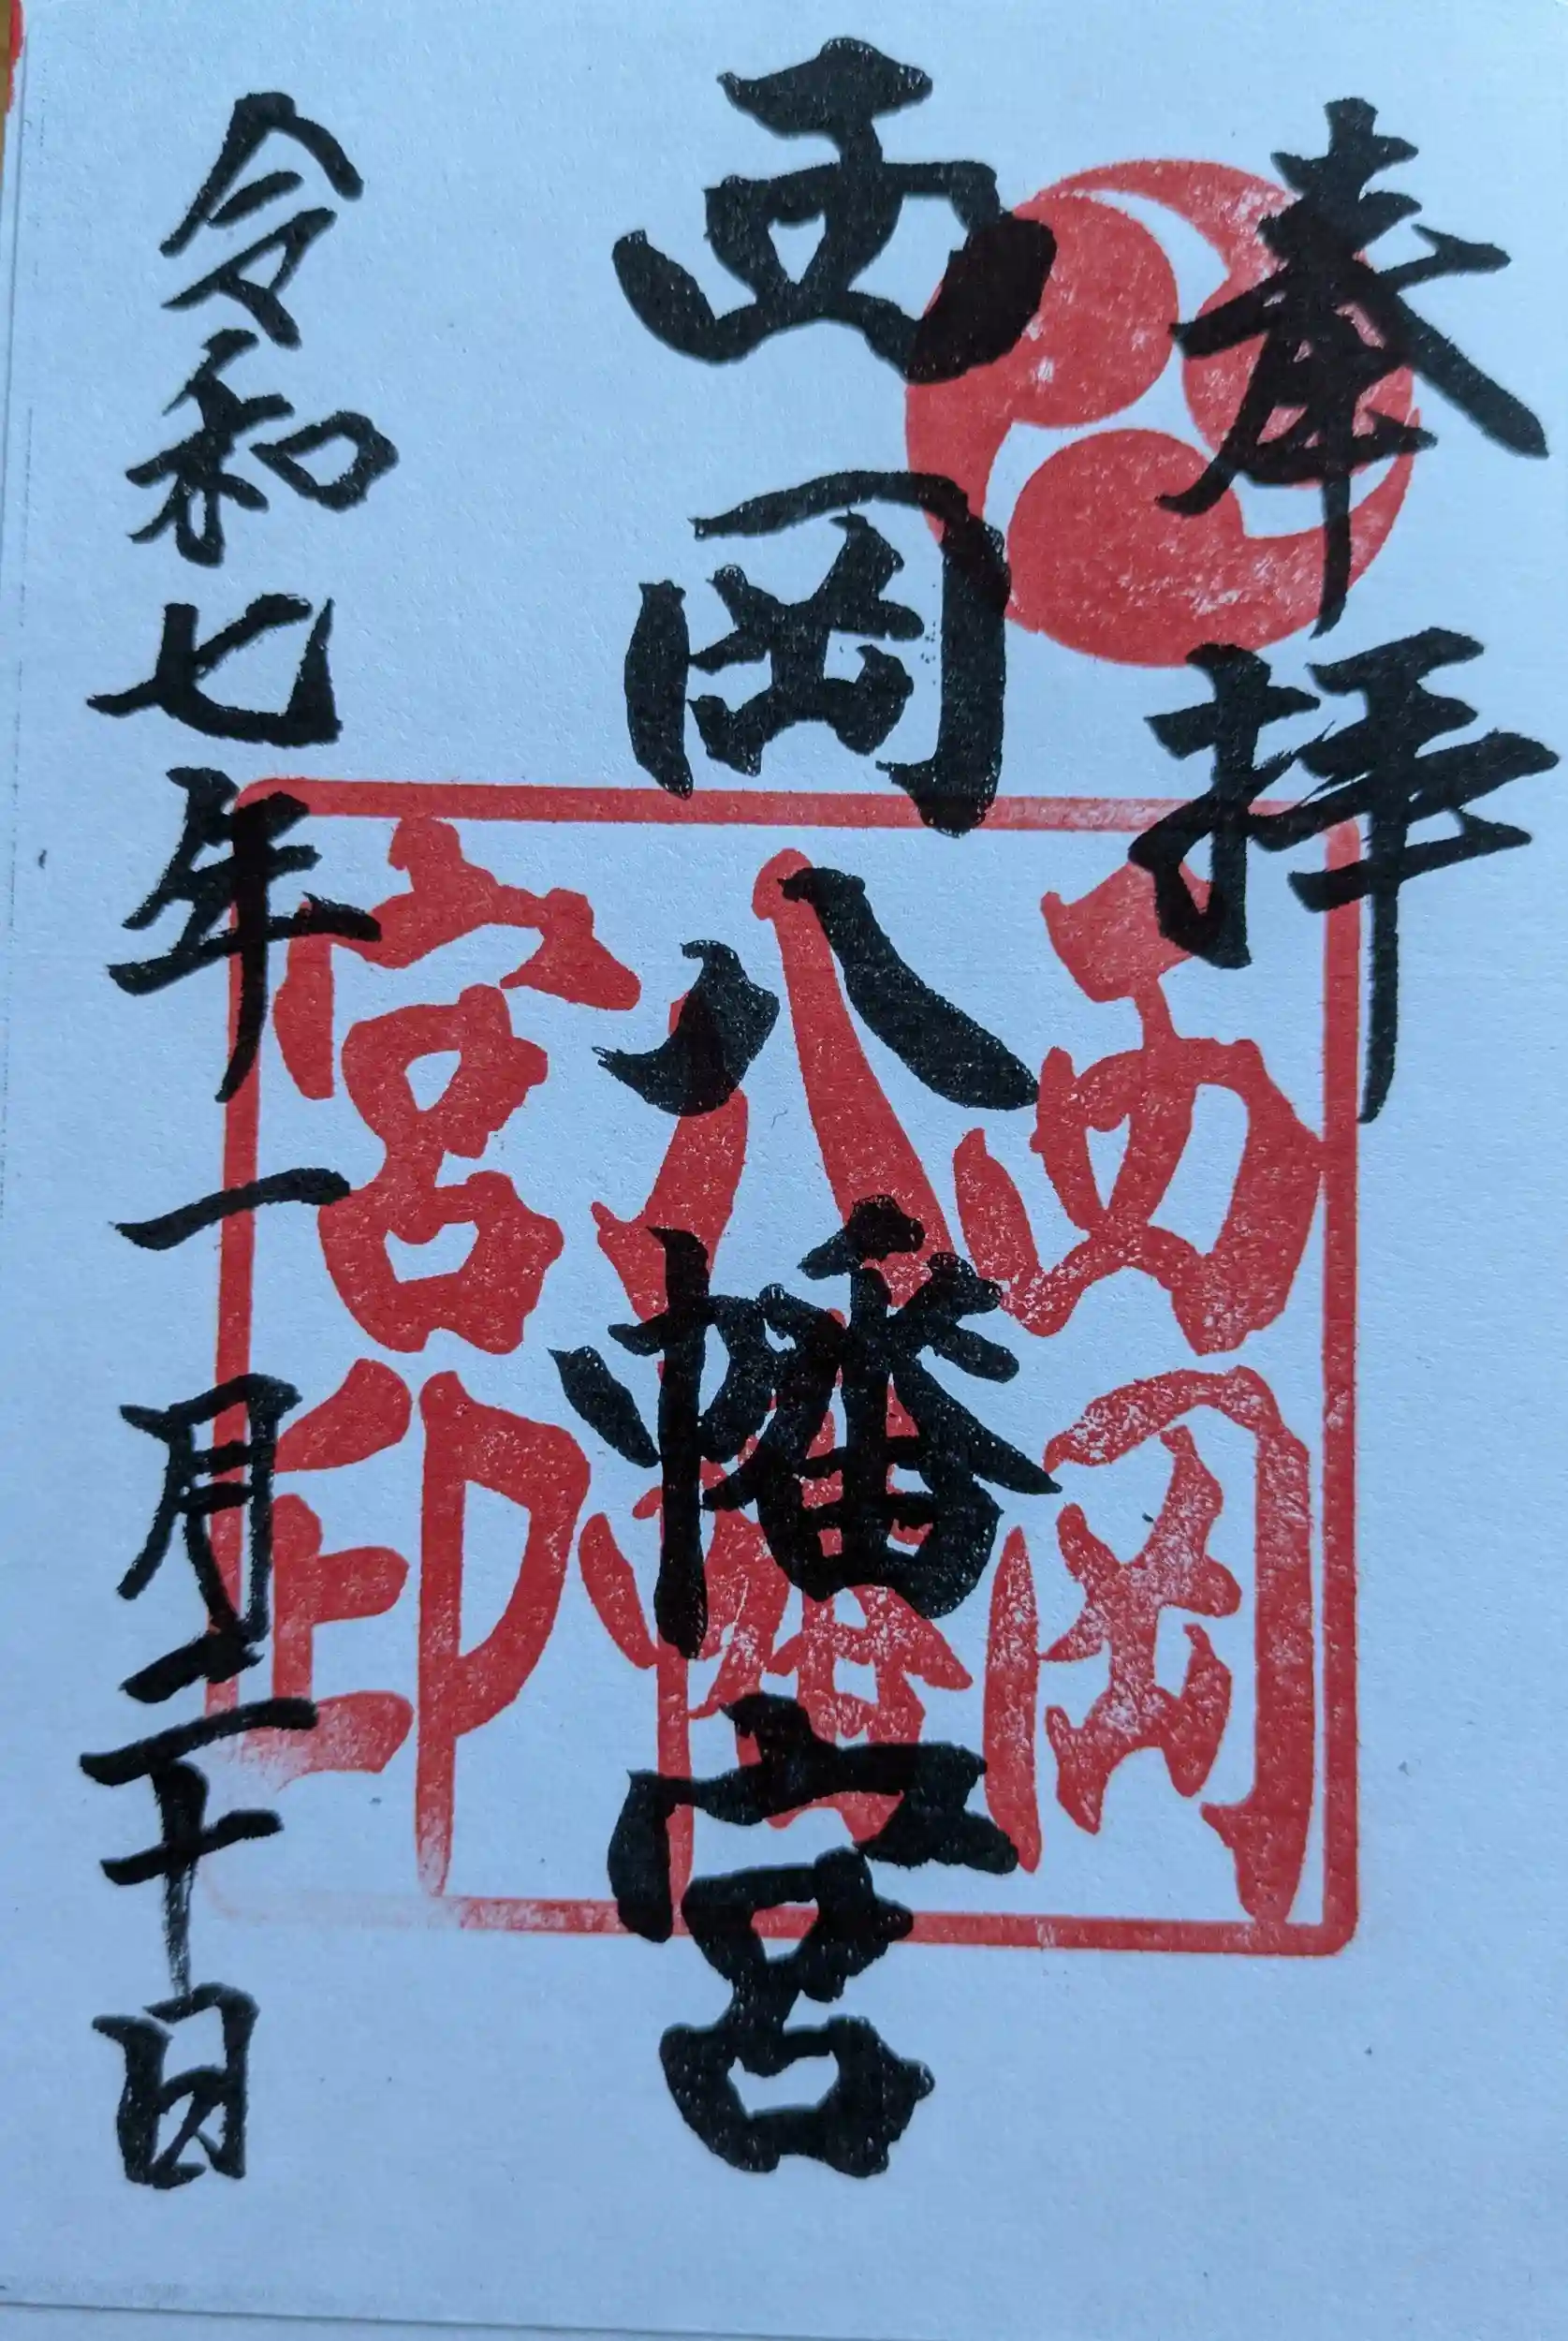 奉拝
西岡八幡宮
西岡
八幡
宮印
令和七年一月二十日